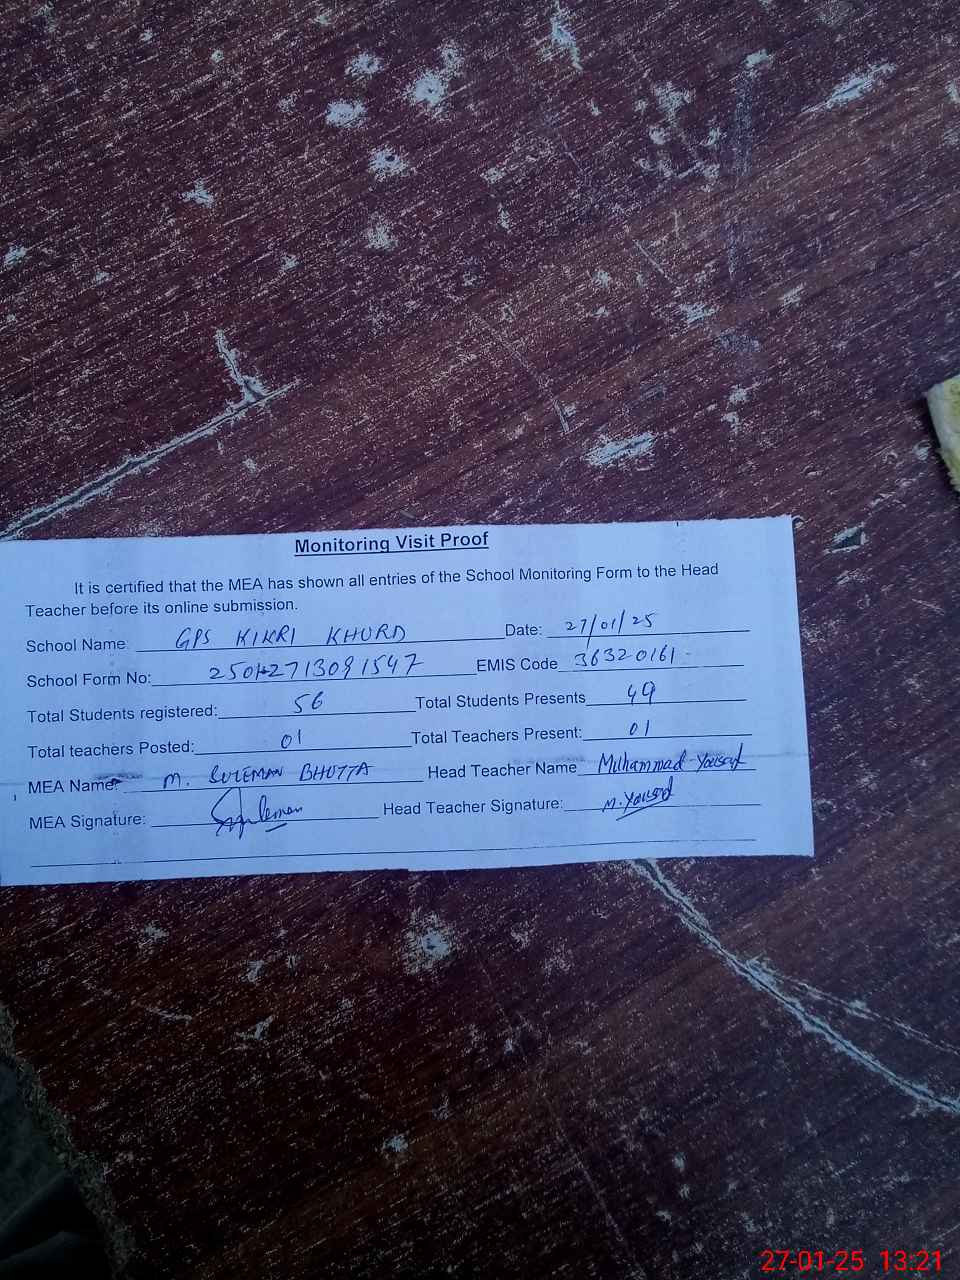 Monitoring Visit Proof
It is certified that the MEA has shown all entries of the School Monitoring Form to the Head
Teacher before its online submission.
School Name: GPS KIKRI KHURD Date: 27/01/25
School Form No: 2713091547 EMIS Code 36320161
Total Students registered: 56 Total Students Presents 49
Total teachers Posted: 01 Total Teachers Present: 01
MEA Name: M. SULEMAN BHUTTA Head Teacher Name Muhammad Yousaf
MEA Signature: Suleman Head Teacher Signature: M. Yousaf
27-01-25 13:21